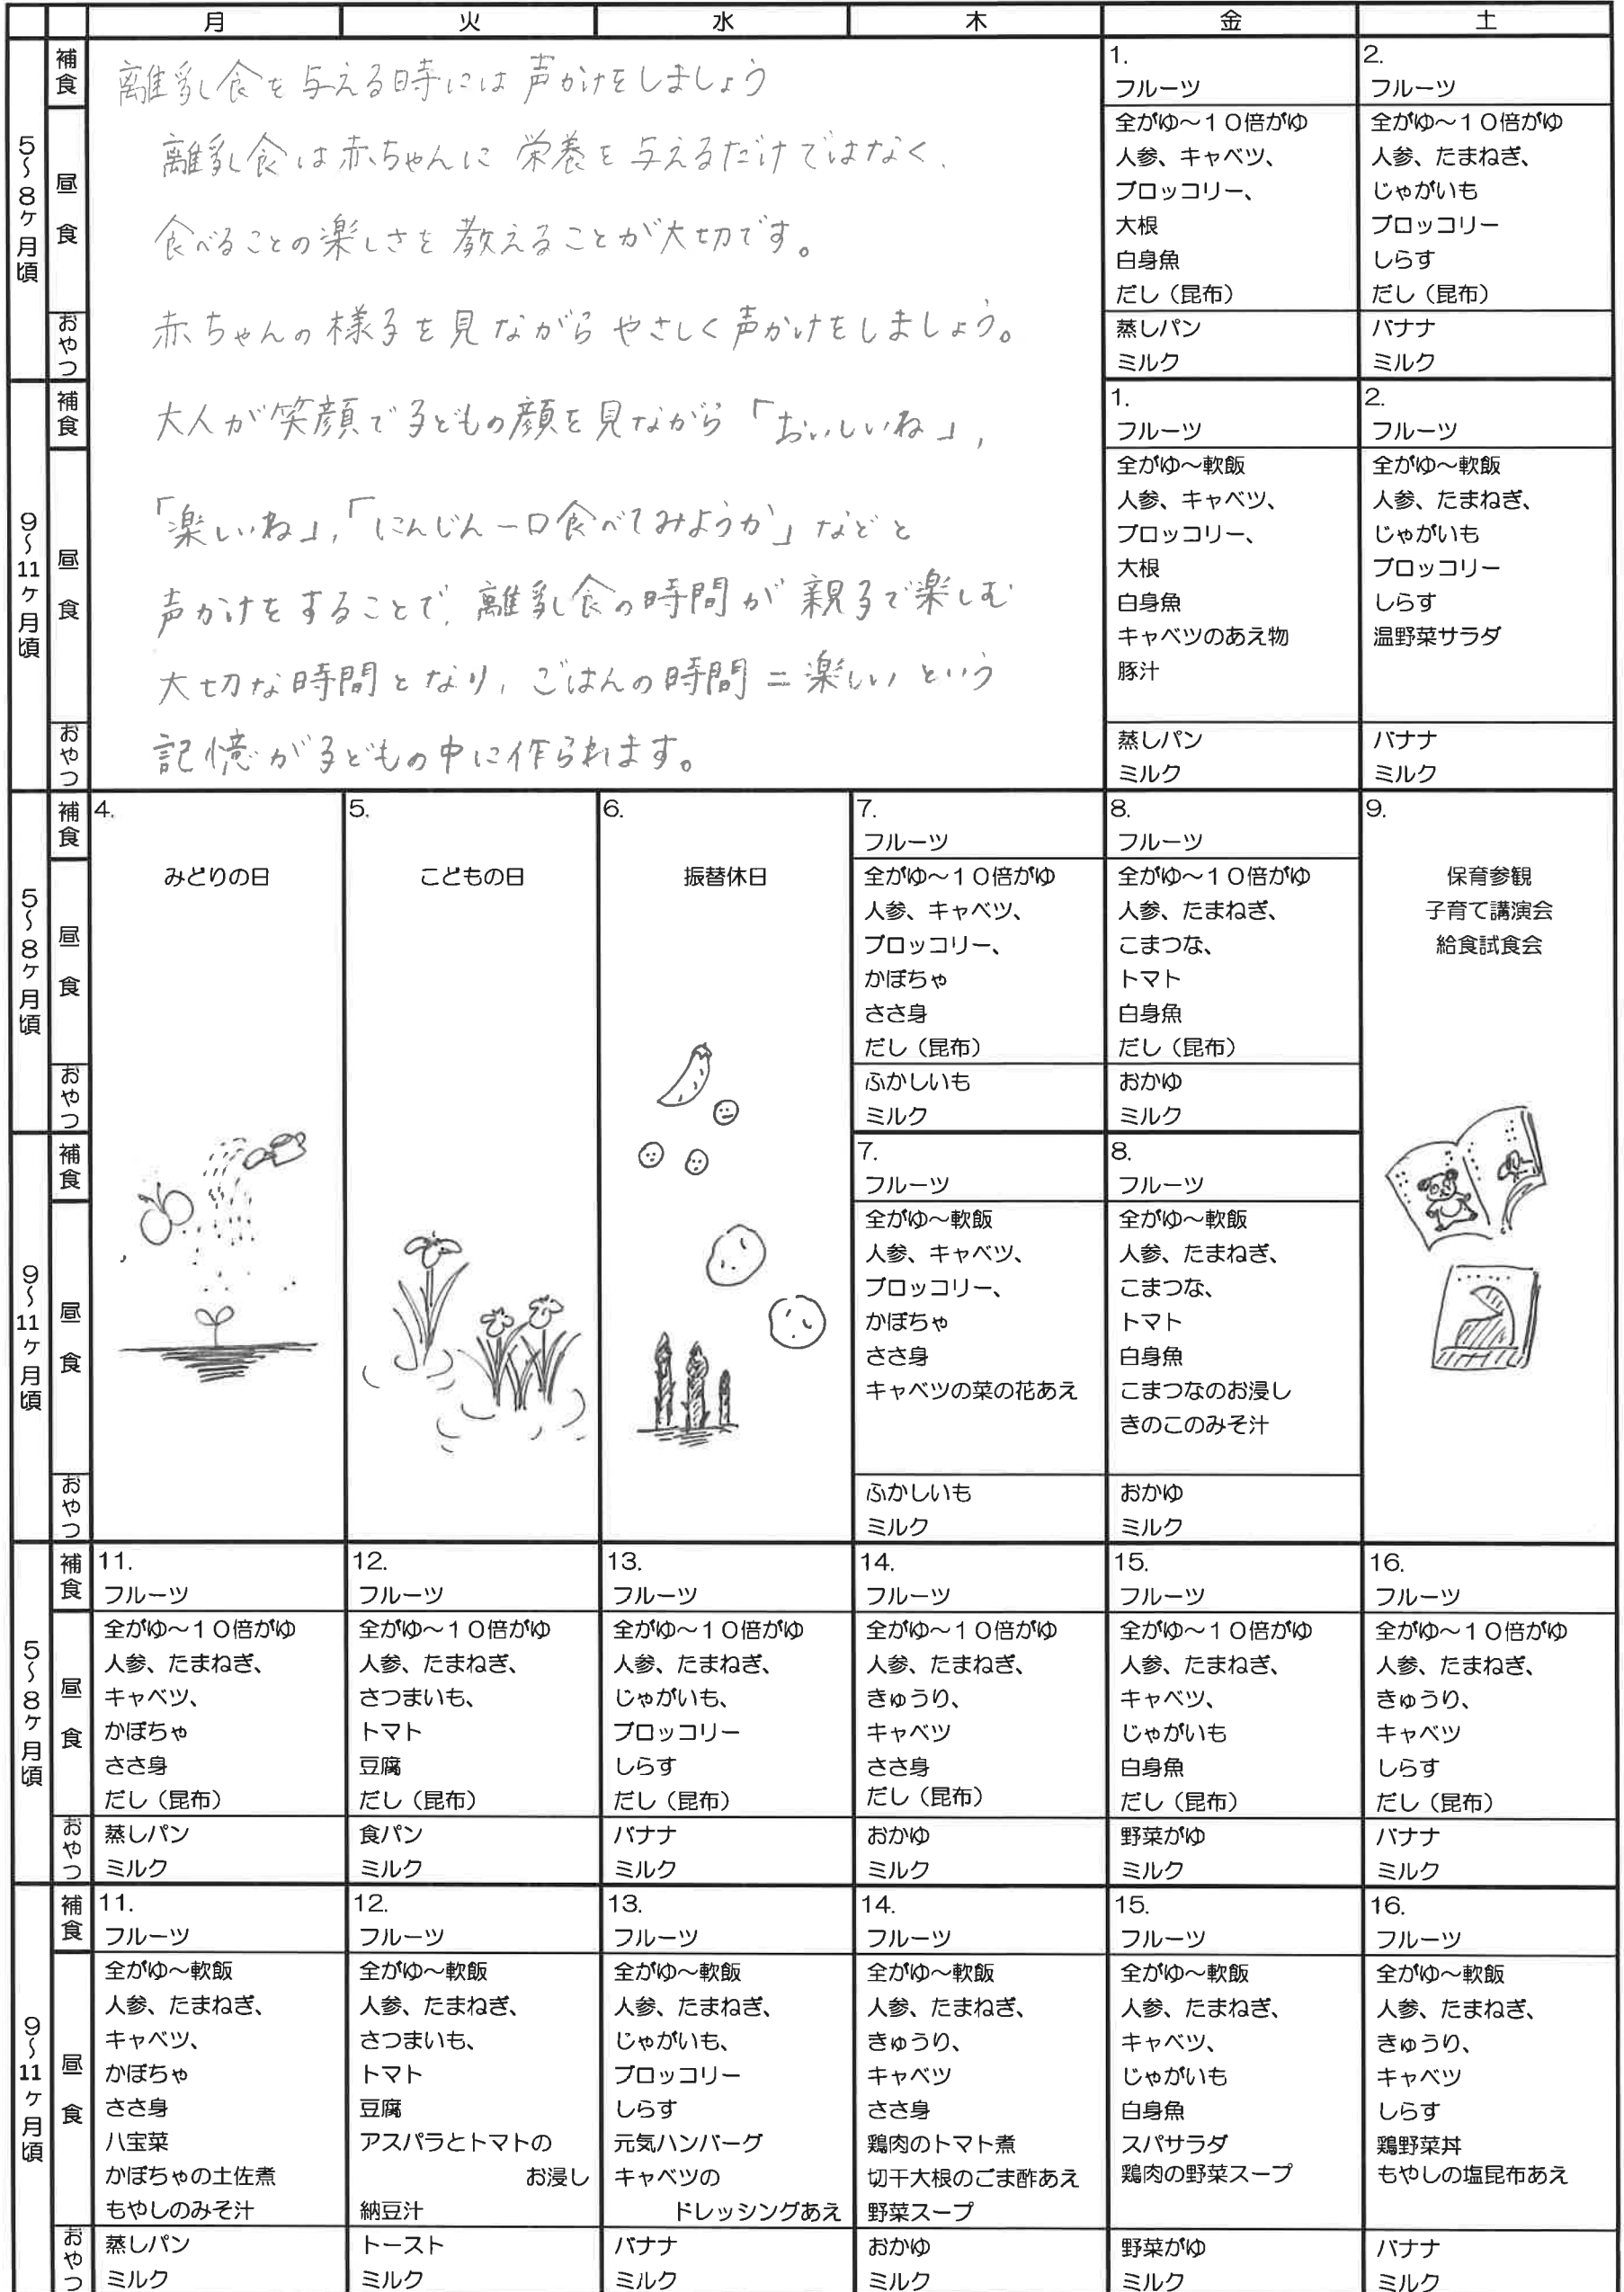 月 火 水 木 金 土
5～8ヶ月頃
補食
離乳食を与える時には声かけをしましょう
離乳食は赤ちゃんに栄養を与えるだけではなく、
食べることの楽しさを教えることが大切です。
赤ちゃんの様子を見ながらやさしく声かけをしましょう。
大人が笑顔で子どもの顔を見ながら「おいしいね」,
「楽しいね」,「にんじん一口食べてみようか」などと
声かけをすることで、離乳食の時間が親子で楽しむ
大切な時間となり, ごはんの時間=楽しいという
記憶が子どもの中に作られます。
1.
フルーツ
2.
フルーツ
昼食
全がゆ～10倍がゆ
人参、キャベツ、
ブロッコリー、
大根
白身魚
だし（昆布）
全がゆ～10倍がゆ
人参、たまねぎ、
じゃがいも
ブロッコリー
しらす
だし（昆布）
おやつ
蒸しパン
ミルク
バナナ
ミルク
9～11ヶ月頃
補食
1.
フルーツ
2.
フルーツ
昼食
全がゆ～軟飯
人参、キャベツ、
ブロッコリー、
大根
白身魚
キャベツのあえ物
豚汁
全がゆ～軟飯
人参、たまねぎ、
じゃがいも
ブロッコリー
しらす
温野菜サラダ
おやつ
蒸しパン
ミルク
バナナ
ミルク
5～8ヶ月頃
補食
4.
みどりの日
5.
こどもの日
6.
振替休日
7.
フルーツ
8.
フルーツ
9.
保育参観
子育て講演会
給食試食会
昼食
全がゆ～10倍がゆ
人参、キャベツ、
ブロッコリー、
かぼちゃ
ささ身
だし（昆布）
全がゆ～10倍がゆ
人参、たまねぎ、
こまつな、
トマト
白身魚
だし（昆布）
おやつ
ふかしいも
ミルク
おかゆ
ミルク
9～11ヶ月頃
補食
7.
フルーツ
8.
フルーツ
昼食
全がゆ～軟飯
人参、キャベツ、
ブロッコリー、
かぼちゃ
ささ身
キャベツの菜の花あえ
全がゆ～軟飯
人参、たまねぎ、
こまつな、
トマト
白身魚
こまつなのお浸し
きのこのみそ汁
おやつ
ふかしいも
ミルク
おかゆ
ミルク
5～8ヶ月頃
補食
11.
フルーツ
12.
フルーツ
13.
フルーツ
14.
フルーツ
15.
フルーツ
16.
フルーツ
昼食
全がゆ～10倍がゆ
人参、たまねぎ、
キャベツ、
かぼちゃ
ささ身
だし（昆布）
全がゆ～10倍がゆ
人参、たまねぎ、
さつまいも、
トマト
豆腐
だし（昆布）
全がゆ～10倍がゆ
人参、たまねぎ、
じゃがいも、
ブロッコリー
しらす
だし（昆布）
全がゆ～10倍がゆ
人参、たまねぎ、
きゅうり、
キャベツ
ささ身
だし（昆布）
全がゆ～10倍がゆ
人参、たまねぎ、
キャベツ、
じゃがいも
白身魚
だし（昆布）
全がゆ～10倍がゆ
人参、たまねぎ、
きゅうり、
キャベツ
しらす
だし（昆布）
おやつ
蒸しパン
ミルク
食パン
ミルク
バナナ
ミルク
おかゆ
ミルク
野菜がゆ
ミルク
バナナ
ミルク
9～11ヶ月頃
補食
11.
フルーツ
12.
フルーツ
13.
フルーツ
14.
フルーツ
15.
フルーツ
16.
フルーツ
昼食
全がゆ～軟飯
人参、たまねぎ、
キャベツ、
かぼちゃ
ささ身
八宝菜
かぼちゃの土佐煮
もやしのみそ汁
全がゆ～軟飯
人参、たまねぎ、
さつまいも、
トマト
豆腐
アスパラとトマトの
お浸し
納豆汁
全がゆ～軟飯
人参、たまねぎ、
じゃがいも、
ブロッコリー
しらす
元気ハンバーグ
キャベツの
ドレッシングあえ
全がゆ～軟飯
人参、たまねぎ、
きゅうり、
キャベツ
ささ身
鶏肉のトマト煮
切干大根のごま酢あえ
野菜スープ
全がゆ～軟飯
人参、たまねぎ、
キャベツ、
じゃがいも
白身魚
スパサラダ
鶏肉の野菜スープ
全がゆ～軟飯
人参、たまねぎ、
きゅうり、
キャベツ
しらす
鶏野菜丼
もやしの塩昆布あえ
おやつ
蒸しパン
ミルク
トースト
ミルク
バナナ
ミルク
おかゆ
ミルク
野菜がゆ
ミルク
バナナ
ミルク